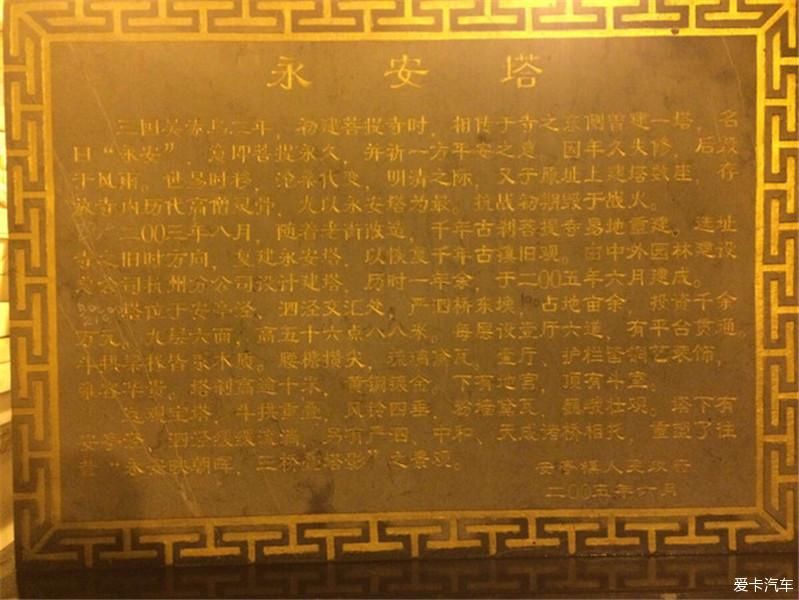 永安塔
三国吴赤乌二年，初建菩提寺时，相传于寺之东侧曾建一塔，名
曰“永安”，意即菩提永久，并祈一方平安之意。因年久失修，后毁
于风雨。世易时移，沧桑代变，明清之际，又于原址上建塔数座，存
放寺内历代高僧灵骨，尤以永安塔为最。抗战初期毁于战火。
二〇〇三年八月，随着老街改造，千年古刹菩提寺易地重建。选址
寺之旧时方向，复建永安塔，以恢复千年古镇旧观。由中外园林建设
总公司杭州分公司设计建塔，历时一年余，于二〇〇五年六月建成。
塔位于安亭泾，泗泾交汇处，严泗桥东堍，占地亩余，投资千余
万元。九层六面，高五十六点八八米。每层设壶门六道，有平台贯通。
斗拱梁椽皆取木质。腰檐攒尖，琉璃 瓦。壶门、护栏皆铜艺装饰，
雍容华贵。塔刹高逾十米，黄铜镀金，下有地宫，顶有斗室。
远观宝塔，斗拱重叠，风铃四垂，粉墙黛瓦，巍峨壮观。塔下有
安亭泾、泗泾缓缓流淌，另有严泗、中和、天成诸桥相托，重塑了往
昔“永安映朝晖，三桥 塔影”之景观。
安亭镇人民政府
二〇〇五年六月
爱卡汽车